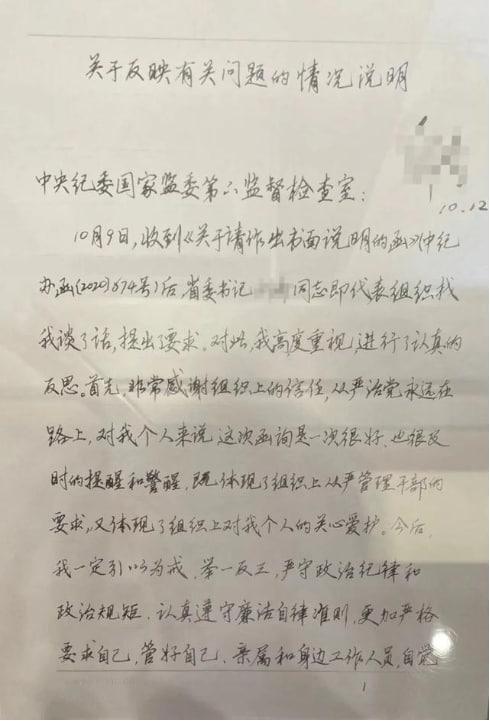 关于反映有关问题的情况说明
10.12
中央纪委国家监委第六监督检查室：
10月9日，收到《关于请作出书面说明的函》（中纪
办函（2020）674号）后，省委书记 同志即代表组织找
我谈了话，提出了要求。对此，我高度重视，进行了认真的
反思。首先，非常感谢组织上的信任，从严治党永远在
路上，对我个人来说，这次函询是一次很好、也很及
时的提醒和警醒，既体现了组织上从严管理干部的
要求，又体现了组织上对我个人的关心爱护。今后，
我一定引以为戒，举一反三，严守政治纪律和
政治规矩，认真遵守廉洁自律准则，更加严格
要求自己，管好自己、亲属和身边工作人员，自觉
1